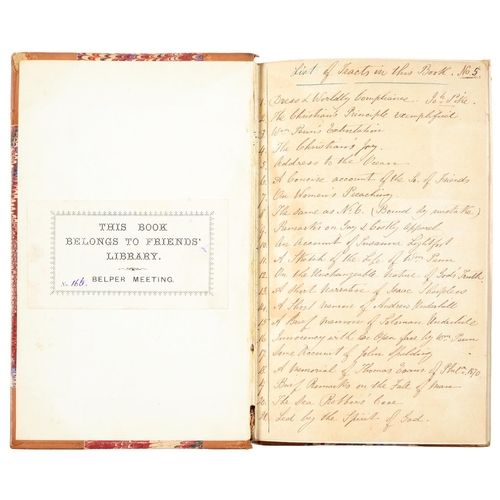 THIS BOOK
BELONGS TO FRIENDS'
LIBRARY.
BELPER MEETING.
No. 166.
List of Tracts in this Book. No. 5
1 Dress & Worldly Compliance. Jos. Pike
2 The Christian's Principle exemplified
3 Wm Penn's Exhortation
4 The Christian's Joy.
5 Address to the Ocean
6 A Concise account of the So. of Friends
7 On Women's Preaching
8 The same as No 6. (Bound by mistake)
9 Remarks on Gay & Costly apparel
10 An Account of Susanna Lightfoot
11 A Sketch of the Life of Wm Penn
12 On the Unchangeable Nature of God's Truth
13 A Short Narrative of Isaac Sharpless
14 A Short memoir of Andrew Underhill
15 A Brief memoir of Solomon Underhill
16 Innocency with her Open face by Wm Penn
17 Some Account of John Spalding
18 A Memorial of Thomas Evans of Phila.
19 Brief Remarks on the Fall of man
20 The Sea Robber's Cave
21 Led by the Spirit of God.